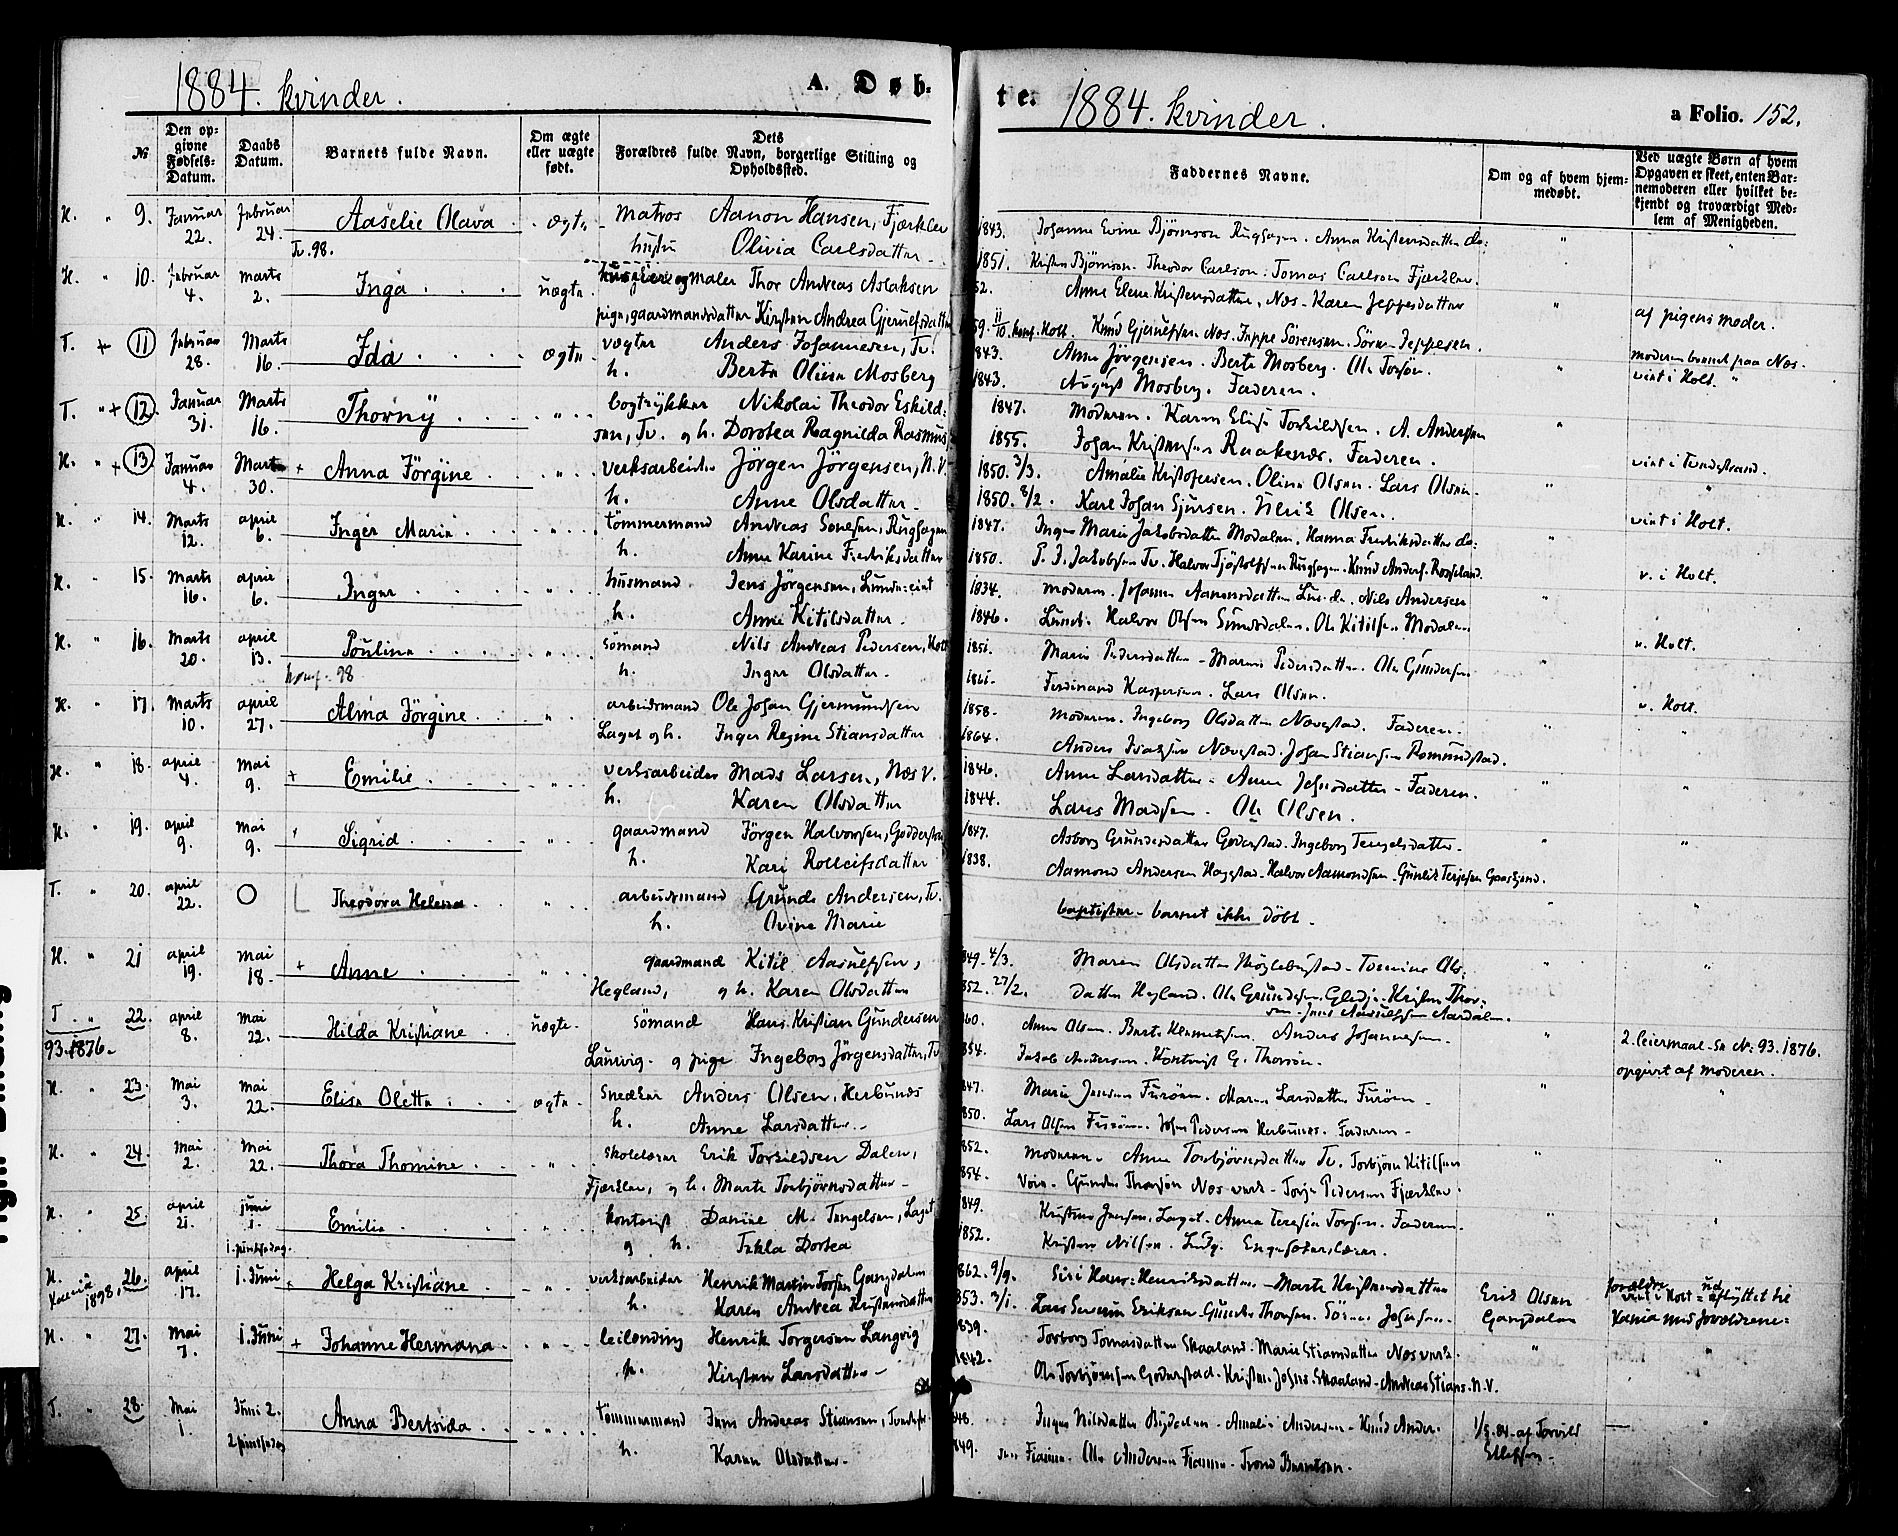 1884. kvinder. A. Døb-
te. 1884. kvinder. a Folio. 152.
№
Den opgivne Fødsels-Datum.
Daabs Datum.
Barnets fulde Navn.
Om ægte eller uægte født.
Dets Forældres fulde Navn, borgerlige Stilling og Opholdssted.
Faddernes Navne.
Om og af hvem hjemmedøbt.
Ved uægte Børn af hvem Opgaven er skeet, enten Barnemoderen eller hvilket bekjendt og troværdigt Medlem af Menigheden.
H. " 9. Januar 22. Februar 24. Aaselie Olava. ægte Matros Aanon Hansen, Fjærkler
Tv. 98. hustru Olivia Carlsdatter
1843. Anna Kristensdatter do:
1851. Kristen Bjørnson. Theodor Carlson. Tomas Carlson Fjærkler.
H. " 10. Februar 4. Marts 2. Inga uægte og maler Thor Andreas Aslaksen
pige, gaardmandsdatter Kirsten Andrea Gjerulfsdatter
52. Anne Elene Kristensdatter, Næs - Karen Jeppesdatter
59. 11/10 konf. Holt. Knud Gjerulfsen Næs. Jeppe Sørensen. Søren Jeppesen.
af pigens moder.
moderen boende paa Næs.
T. + 11 Februar 28. Marts 16. Ida ægte vogter Anders Johannesen, Tv.
h. Berte Oline Mosberg
1843. Anne Jørgensen. Berte Mosberg. Ole Torsøn.
1843. August Mosberg. Faderen.
viet i Holt. "
T. " + 12. Januar 31. Marts 16. Thorny " bogtrykker Nikolai Theodor Eskild-
sen, Tv. og h. Dorotea Ragnilda Rasmus
1847. Moderen. Karen Elise Torkildsen. A. Andersen
1855. Johan Kristensen Raakenæs. Faderen.
viet i Tvedestrand.
H. " + 13. Januar 4. Marts 30. + Anna Jörgine " verksarbeider Jörgen Jörgensen, N.V.
h. Anne Olsdatter
1850. 3/3. Amalie Kristofersen. Oline Olsen. Lars Olsen
1850. 8/2. Karl Johan Sjursen. Ulrik Olsen.
"
H. " 14. Marts 12. april 6. Inger Marie " tömmermand Andreas Sonesen, Rugsagen
h. Anne Karine Fredriksdatter
1847. Inger Marie Jakobsdatter Modalen. Hanna Fredriksdatter do:
1850. P. J. Jakobsen Tv. Halvor Tjøstolfsen Rugsagen. Knud Anders. Rosseland.
viet i Holt.
H. " 15. Marts 16. april 6. Inger " husmand Jens Jörgensen, Lunde-eiet
h. Anne Kitilsdatter.
1834. Moderen. Johanne Aanonsdatter Lunde. Nils Andersen
1846. Lunde. Halvor Olsen Sundsdalen. Ole Kitilsen Modalen
v. i Holt.
H. " 16. Marts 20. april 13. Pouline " sömand Nils Andreas Pedersen, Holt
konf. 98 h. Inger Olsdatter.
1851. Marie Pedersdatter - Maren Pedersdatter. Ole Gundersen
1861. Ferdinand Kaspersen. Lars Olsen.
v. Holt.
H. " 17. Marts 10. april 27. Alma Jörgine " arbeidsmand Ole Johan Gjermundsen
Laget og h. Inger Regine Stiansdatter
1858. Moderen. Ingeborg Olsdatter Nævestad. Faderen.
1864. Anders Isaksen Nævestad. Johan Stiansen Romundstad.
v. Holt.
H. " 18. april 4. Mai 9. + Emilie " verksarbeider Mads Larsen, Næs V.
h. Karen Olsdatter
1846. Anne Larsdatter - Anne Johnsdatter - Faderen.
1844. Lars Madsen. Ole Olsen.
H. " 19. april 9. Mai 9. Sigrid " gaardmand Jörgen Halvorsen, Godderstad
h. Kari Rolleifsdatter
1847. Asborg Grundesdatter Goderstad. Ingeborg Tengelsdatter.
1838. Aamond Andersen Haugstad. Halvor Aamondsen. Gunlik Terjesen
T. " 20. april 22. O Theodora Helena " arbeidsmand Grunde Andersen, Tv.
h. Ovine Marie
baptister - barnet ikke döbt.
H. " 21 april 19. Mai 18. + Anne " gaardmand Kitil Aasulfsen,
Hegland, og h. Karen Olsdatter
849. 4/3. Maren Olsdatter Møglebustad - Tomine Ols-
852. 27/2. datter Hegland. Ole Grundesen, Gledje. Kristen Thor-
sen. Jens Aasulfsen Aardalen.
T. " 22. april 8. Mai 22. Hilda Kristiane uægte. Sömand Hans Kristian Gundersen
93. 1876. Laurvig. og pige Ingeborg Jörgensdatter, Tv
860. Anne Olsen. Berte Klemetsen. Anders Johannesen.
854. Jakob Andersen. Kontorist G. Thorsøn.
2. leiermaal. Se Nr. 93. 1876.
opgivt af moderen.
H. " 23. Mai 3. Mai 22. Elise Olette ægte. Snedker Anders Olsen, Herbunes
h. Anne Larsdatter
847. Marie Jensen Furöen. Maren Larsdatter Furöen
850. Lars Olsen Furöen. Johan Pedersen Herbunes. Faderen
H. " 24. Mai 2. Mai 22. Thora Thomine " Skolelærer Erik Torkildsen Dalen,
Fjærkler, og h. Marte Torbjörnsdatter
852. Moderen. Anne Torbjörnsdatter Tv. Torbjörn Kitilsen
854. Voie. Gunder Thorsøn Næs verk - Torje Pedersen Fjærkler.
H. " 25. april 21. juni 1. Emilie " kontorist Daniel M. Tengelsen, Laget
1. pintsedag. og h. Tekla Dortea
849. Kristine Jensen, Laget. Anna Teresia Torsen. Faderen
1852. Kristen Nilsen. Ludv. Engesæter, lærer.
H. " 26. april 17. 1. Juni + Helga Kristiane " verksarbeider Henrik Martin Torsen Gangdalen
1898. h. Karen Andrea Kristensdatter
862. 9/9. Siri Hans: Henriksdatter - Marte Kristensdatter
853. 3/1. Lars Severin Eriksen. Gunder Thorsen. Sören Josefsen.
Erik Olsen Gangdalen
forældre viet i Holt = udflyttet til Xania med forældrene
H. " 27. Mai 7. 1. Juni + Johanne Hermana " leilending Henrik Torgersen Langvig
h. Kirsten Larsdatter
839. Torborg Tomasdatter Skaaland. Marie Stiansdatter Næs verk.
1842. Ole Torbjörnsen Goderstad. Kristen Johns. Skaaland. Andreas Stians. N.V.
T. " 28. Mai 1. Juni 2. Anna Bertsida " tömmermand Jens Andreas Stiansen, Tvedestr.
2 pintsedag h. Karen Olsdatter
848. Inger Nilsdatter Bydalen - Amalie Andersen - Knud Ander-
849. sen Fianne. Ole Andersen Fianne. Trond Berntsen.
1/5. 84. af Torvild Ellefsen.